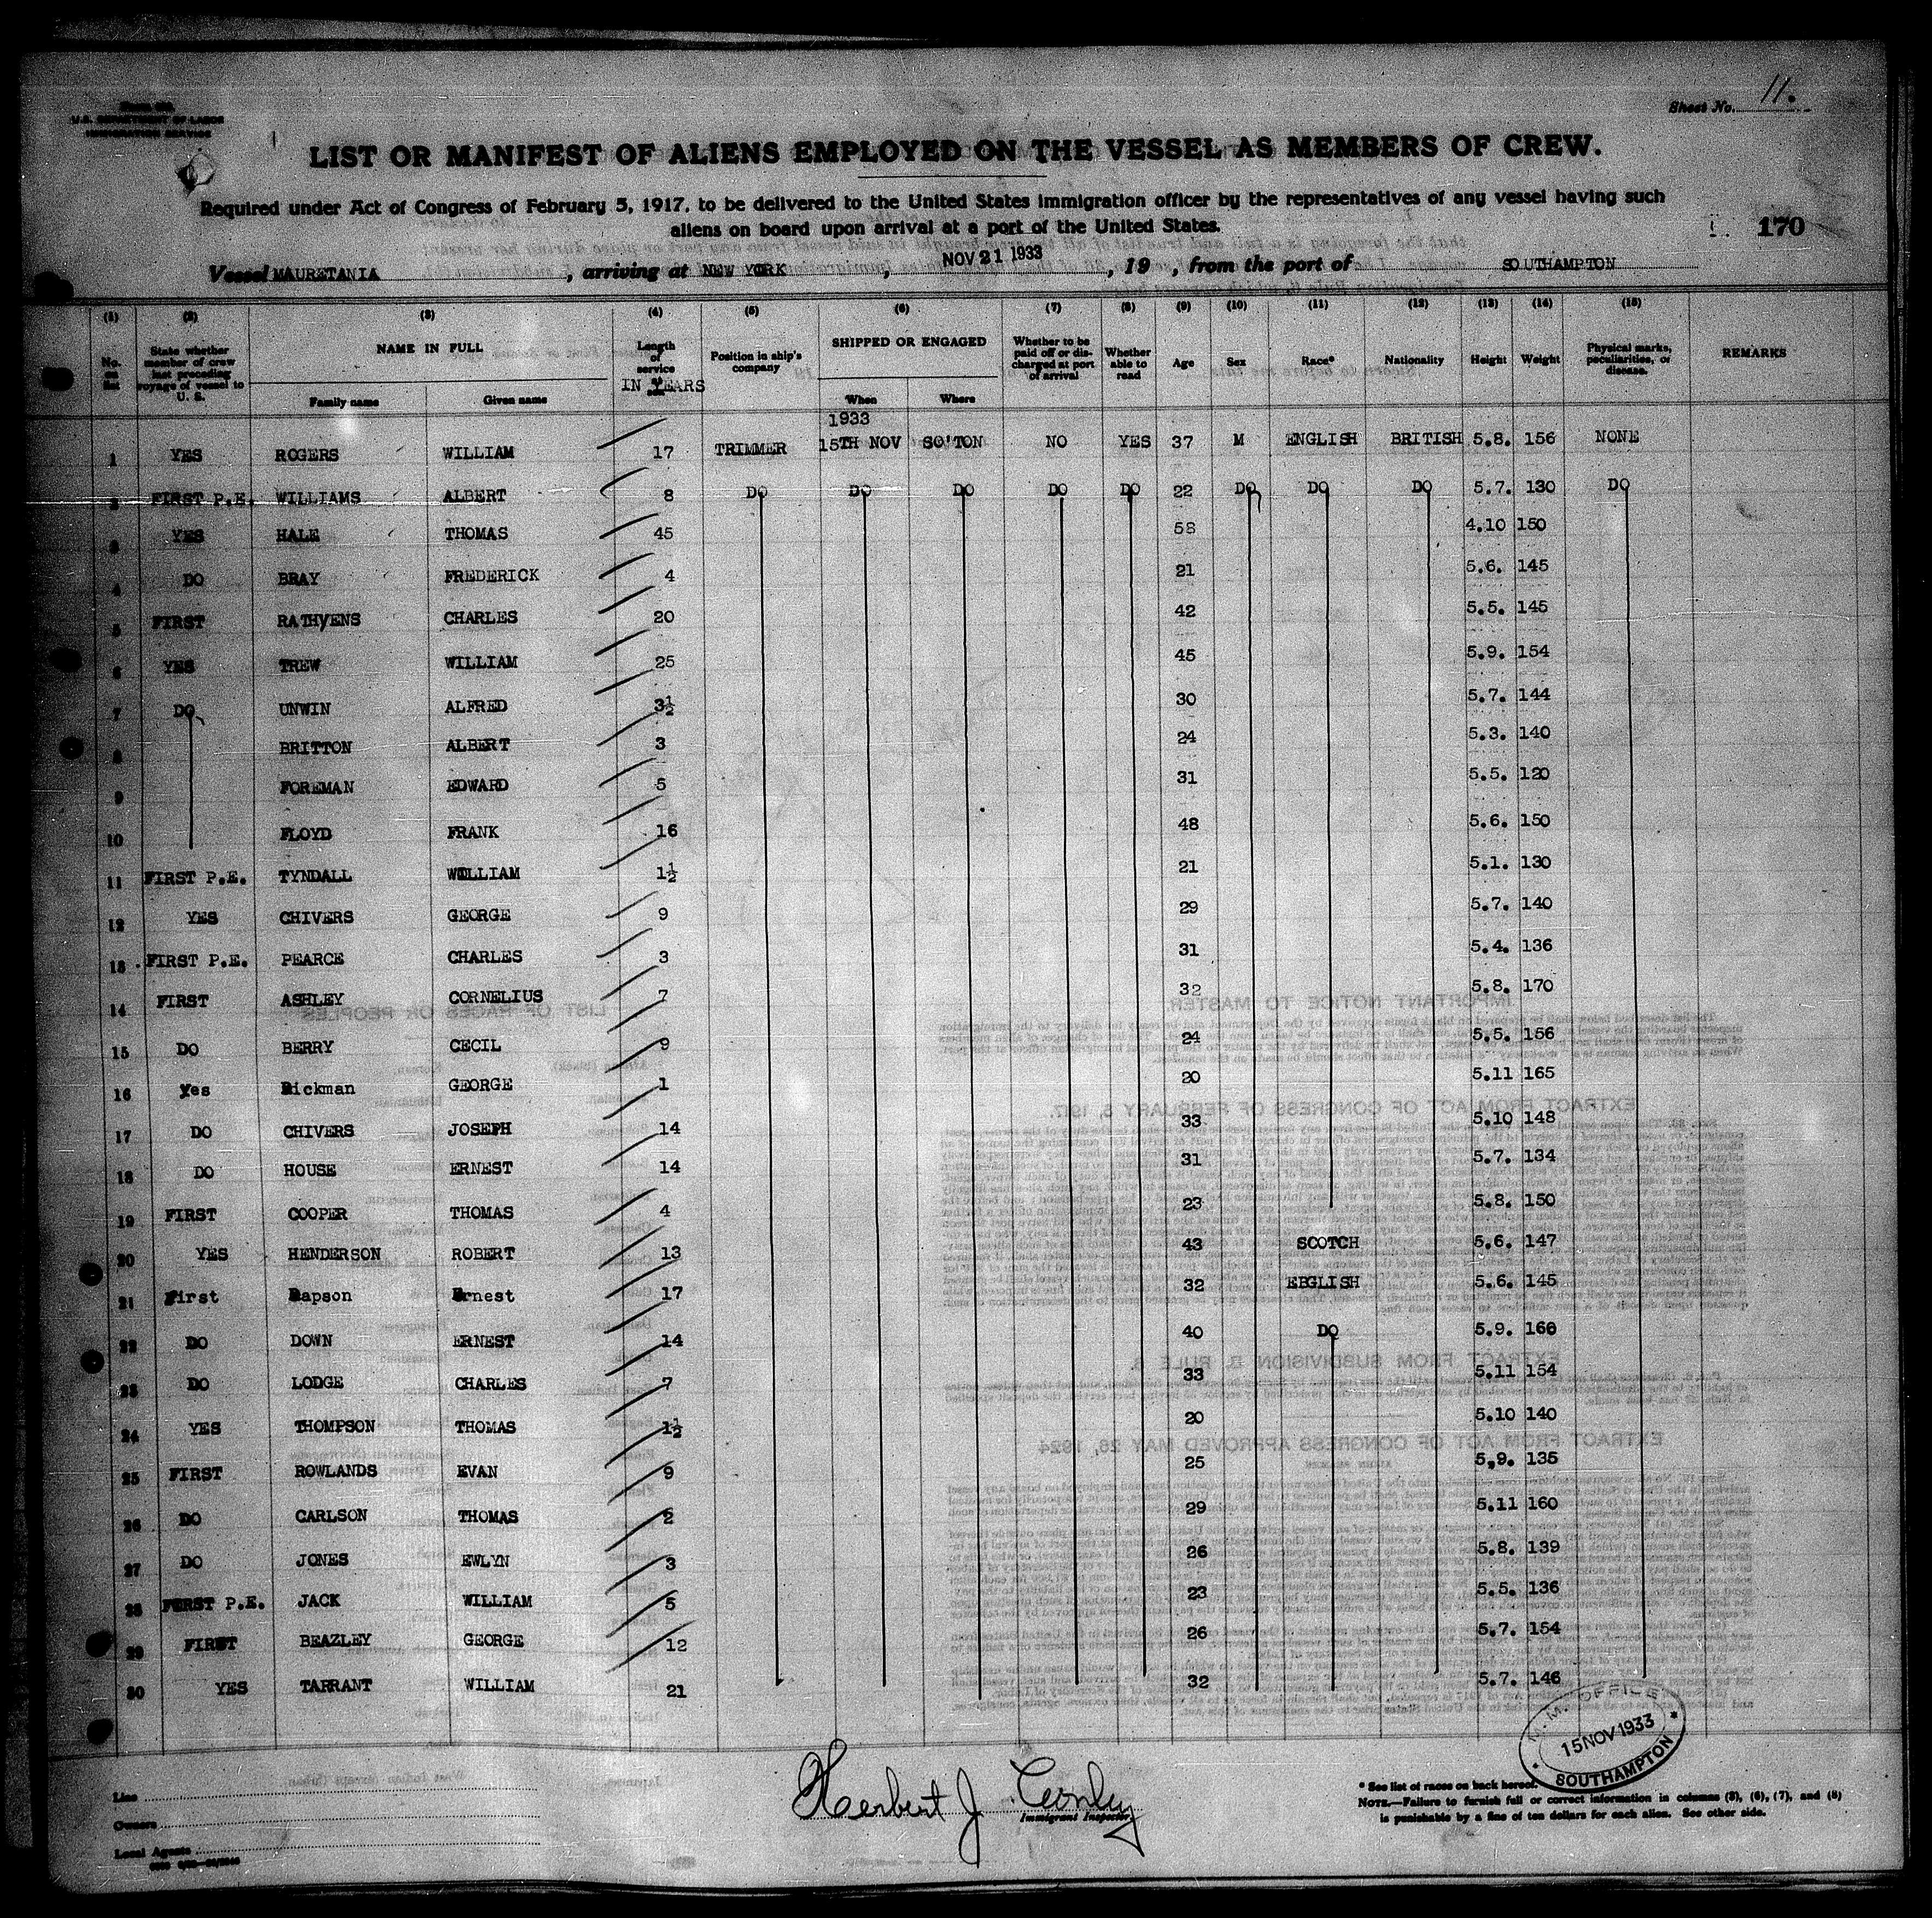 Sheet No. 11.
U.S. DEPARTMENT OF LABOR
IMMIGRATION SERVICE
LIST OR MANIFEST OF ALIENS EMPLOYED ON THE VESSEL AS MEMBERS OF CREW.
Required under Act of Congress of February 5, 1917, to be delivered to the United States immigration officer by the representatives of any vessel having such
aliens on board upon arrival at a port of the United States.
170
Vessel MAURETANIA, arriving at NEW YORK, NOV 21 1933, 19 , from the port of SOUTHAMPTON
(1) (2) (3) (4) (5) (6) (7) (8) (9) (10) (11) (12) (13) (14) (15)
No. on list State whether member of crew last preceding voyage of vessel to U. S. NAME IN FULL Family name Given name Length of service IN YEARS Position in ship's company SHIPPED OR ENGAGED When Where Whether to be paid off or discharged at port of arrival Whether able to read Age Sex Race* Nationality Height Weight Physical marks, peculiarities, or disease. REMARKS
1933
1 YES ROGERS WILLIAM 17 TRIMMER 15TH NOV SO'TON NO YES 37 M ENGLISH BRITISH 5.8. 156 NONE
2 FIRST P.E. WILLIAMS ALBERT 8 DO DO DO DO DO 22 DO DO DO 5.7. 130 DO
3 YES HALE THOMAS 45 58 4.10 150
4 DO BRAY FREDERICK 4 21 5.6. 145
5 FIRST RATHVENS CHARLES 20 42 5.5. 145
6 YES TREW WILLIAM 25 45 5.9. 154
7 DO UNWIN ALFRED 3½ 30 5.7. 144
8 BRITTON ALBERT 3 24 5.3. 140
9 FOREMAN EDWARD 5 31 5.5. 120
10 FLOYD FRANK 16 48 5.6. 150
11 FIRST P.E. TYNDALL WILLIAM 1½ 21 5.1. 130
12 YES CHIVERS GEORGE 9 29 5.7. 140
13 FIRST P.E. PEARCE CHARLES 3 31 5.4. 136
14 FIRST ASHLEY CORNELIUS 7 32 5.8. 170
15 DO BERRY CECIL 9 24 5.5. 156
16 Yes Dickman GEORGE 1 20 5.11 165
17 DO CHIVERS JOSEPH 14 33 5.10 148
18 DO HOUSE ERNEST 14 31 5.7. 134
19 FIRST COOPER THOMAS 4 23 5.8. 150
20 YES HENDERSON ROBERT 13 43 SCOTCH 5.6. 147
21 First Rapson Ernest 17 32 EBGLISH 5.6. 145
22 DO DOWN ERNEST 14 40 DO 5.9. 166
23 DO LODGE CHARLES 7 33 5.11 154
24 YES THOMPSON THOMAS 1½ 20 5.10 140
25 FIRST ROWLANDS EVAN 9 25 5,9. 135
26 DO CARLSON THOMAS 2 29 5.11 160
27 DO JONES EWLYN 3 26 5.8. 139
28 FIRST P.E. JACK WILLIAM 5 23 5.5. 136
29 FIRST BEAZLEY GEORGE 12 26 5.7. 154
30 YES TARRANT WILLIAM 21 32 5.7. 146
M. M. OFFICE
15 NOV 1933
SOUTHAMPTON
Line
Owners
Local Agents
Herbert J.
Immigrant Inspector.
* See list of races on back hereof.
NOTE.—Failure to furnish full or correct information in columns (2), (6), (7), and (8)
is punishable by a fine of ten dollars for each alien. See other side.